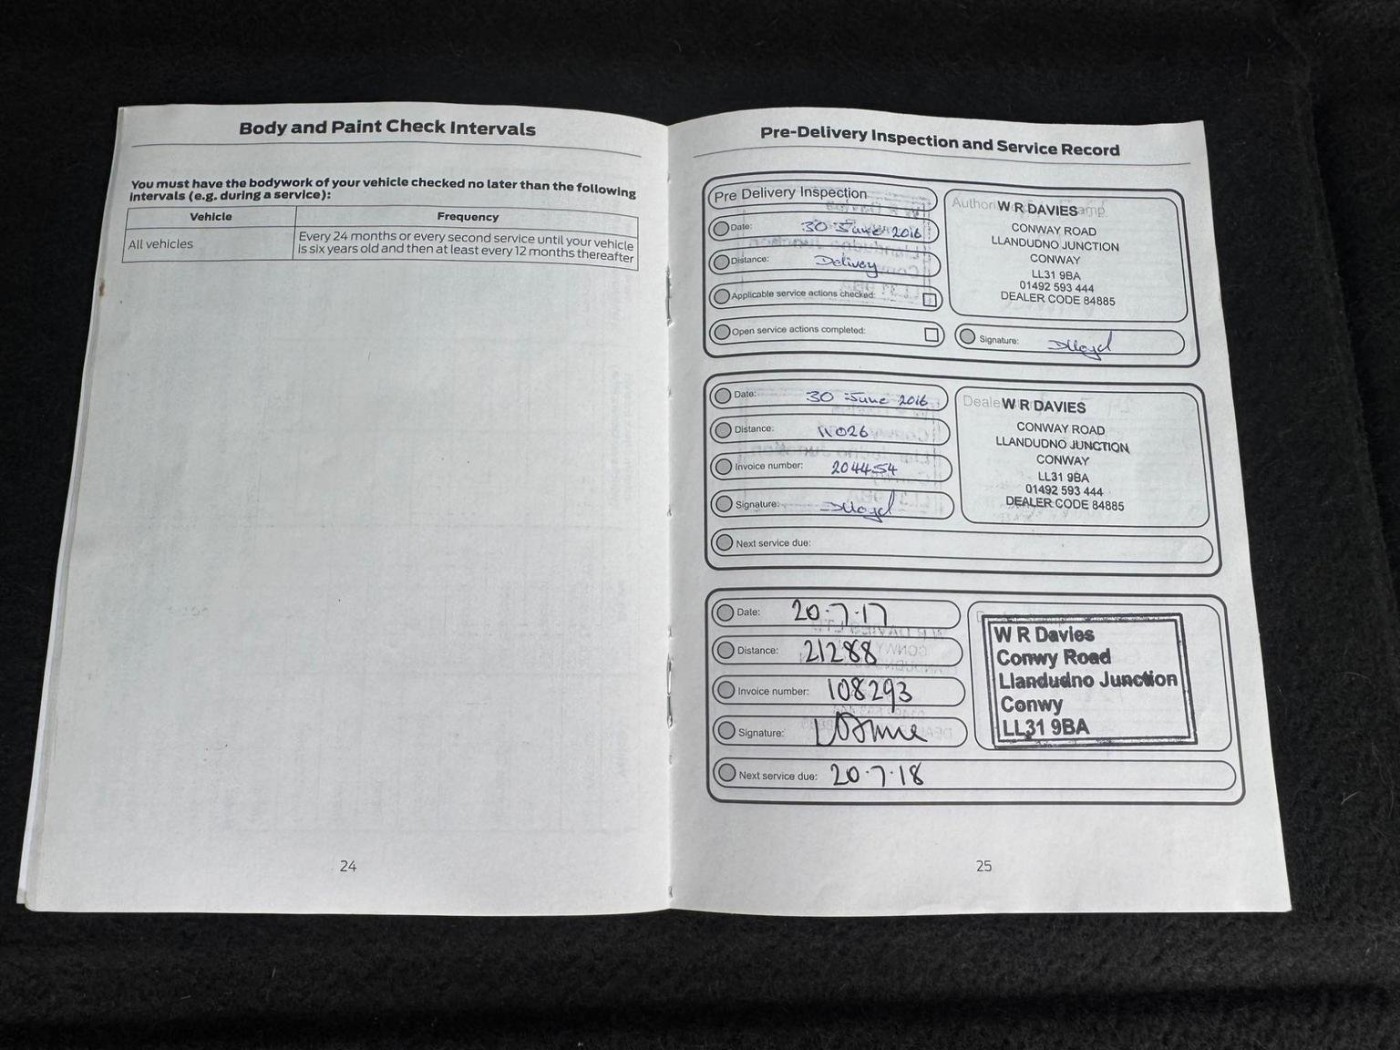 Body and Paint Check Intervals
You must have the bodywork of your vehicle checked no later than the following
intervals (e.g. during a service):
Vehicle Frequency
All vehicles Every 24 months or every second service until your vehicle
is six years old and then at least every 12 months thereafter
24
Pre-Delivery Inspection and Service Record
Pre Delivery Inspection
Date: 30 June 2016
Distance: Delivery
Applicable service actions checked:
Open service actions completed:
W R DAVIES
CONWAY ROAD
LLANDUDNO JUNCTION
CONWAY
LL31 9BA
01492 593 444
DEALER CODE 84885
Signature: DLloyd
Date: 30 June 2016
Distance: 11026
Invoice number: 204454
Signature: DLloyd
Next service due:
W R DAVIES
CONWAY ROAD
LLANDUDNO JUNCTION
CONWAY
LL31 9BA
01492 593 444
DEALER CODE 84885
Date: 20.7.17
Distance: 21288
Invoice number: 108293
Signature:
Next service due: 20.7.18
W R Davies
Conwy Road
Llandudno Junction
Conwy
LL31 9BA
25